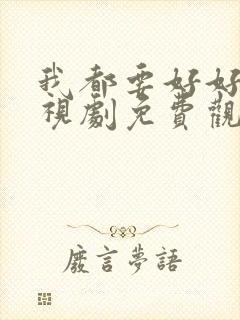 我都要好好
視劇免費觀
廢言夢語